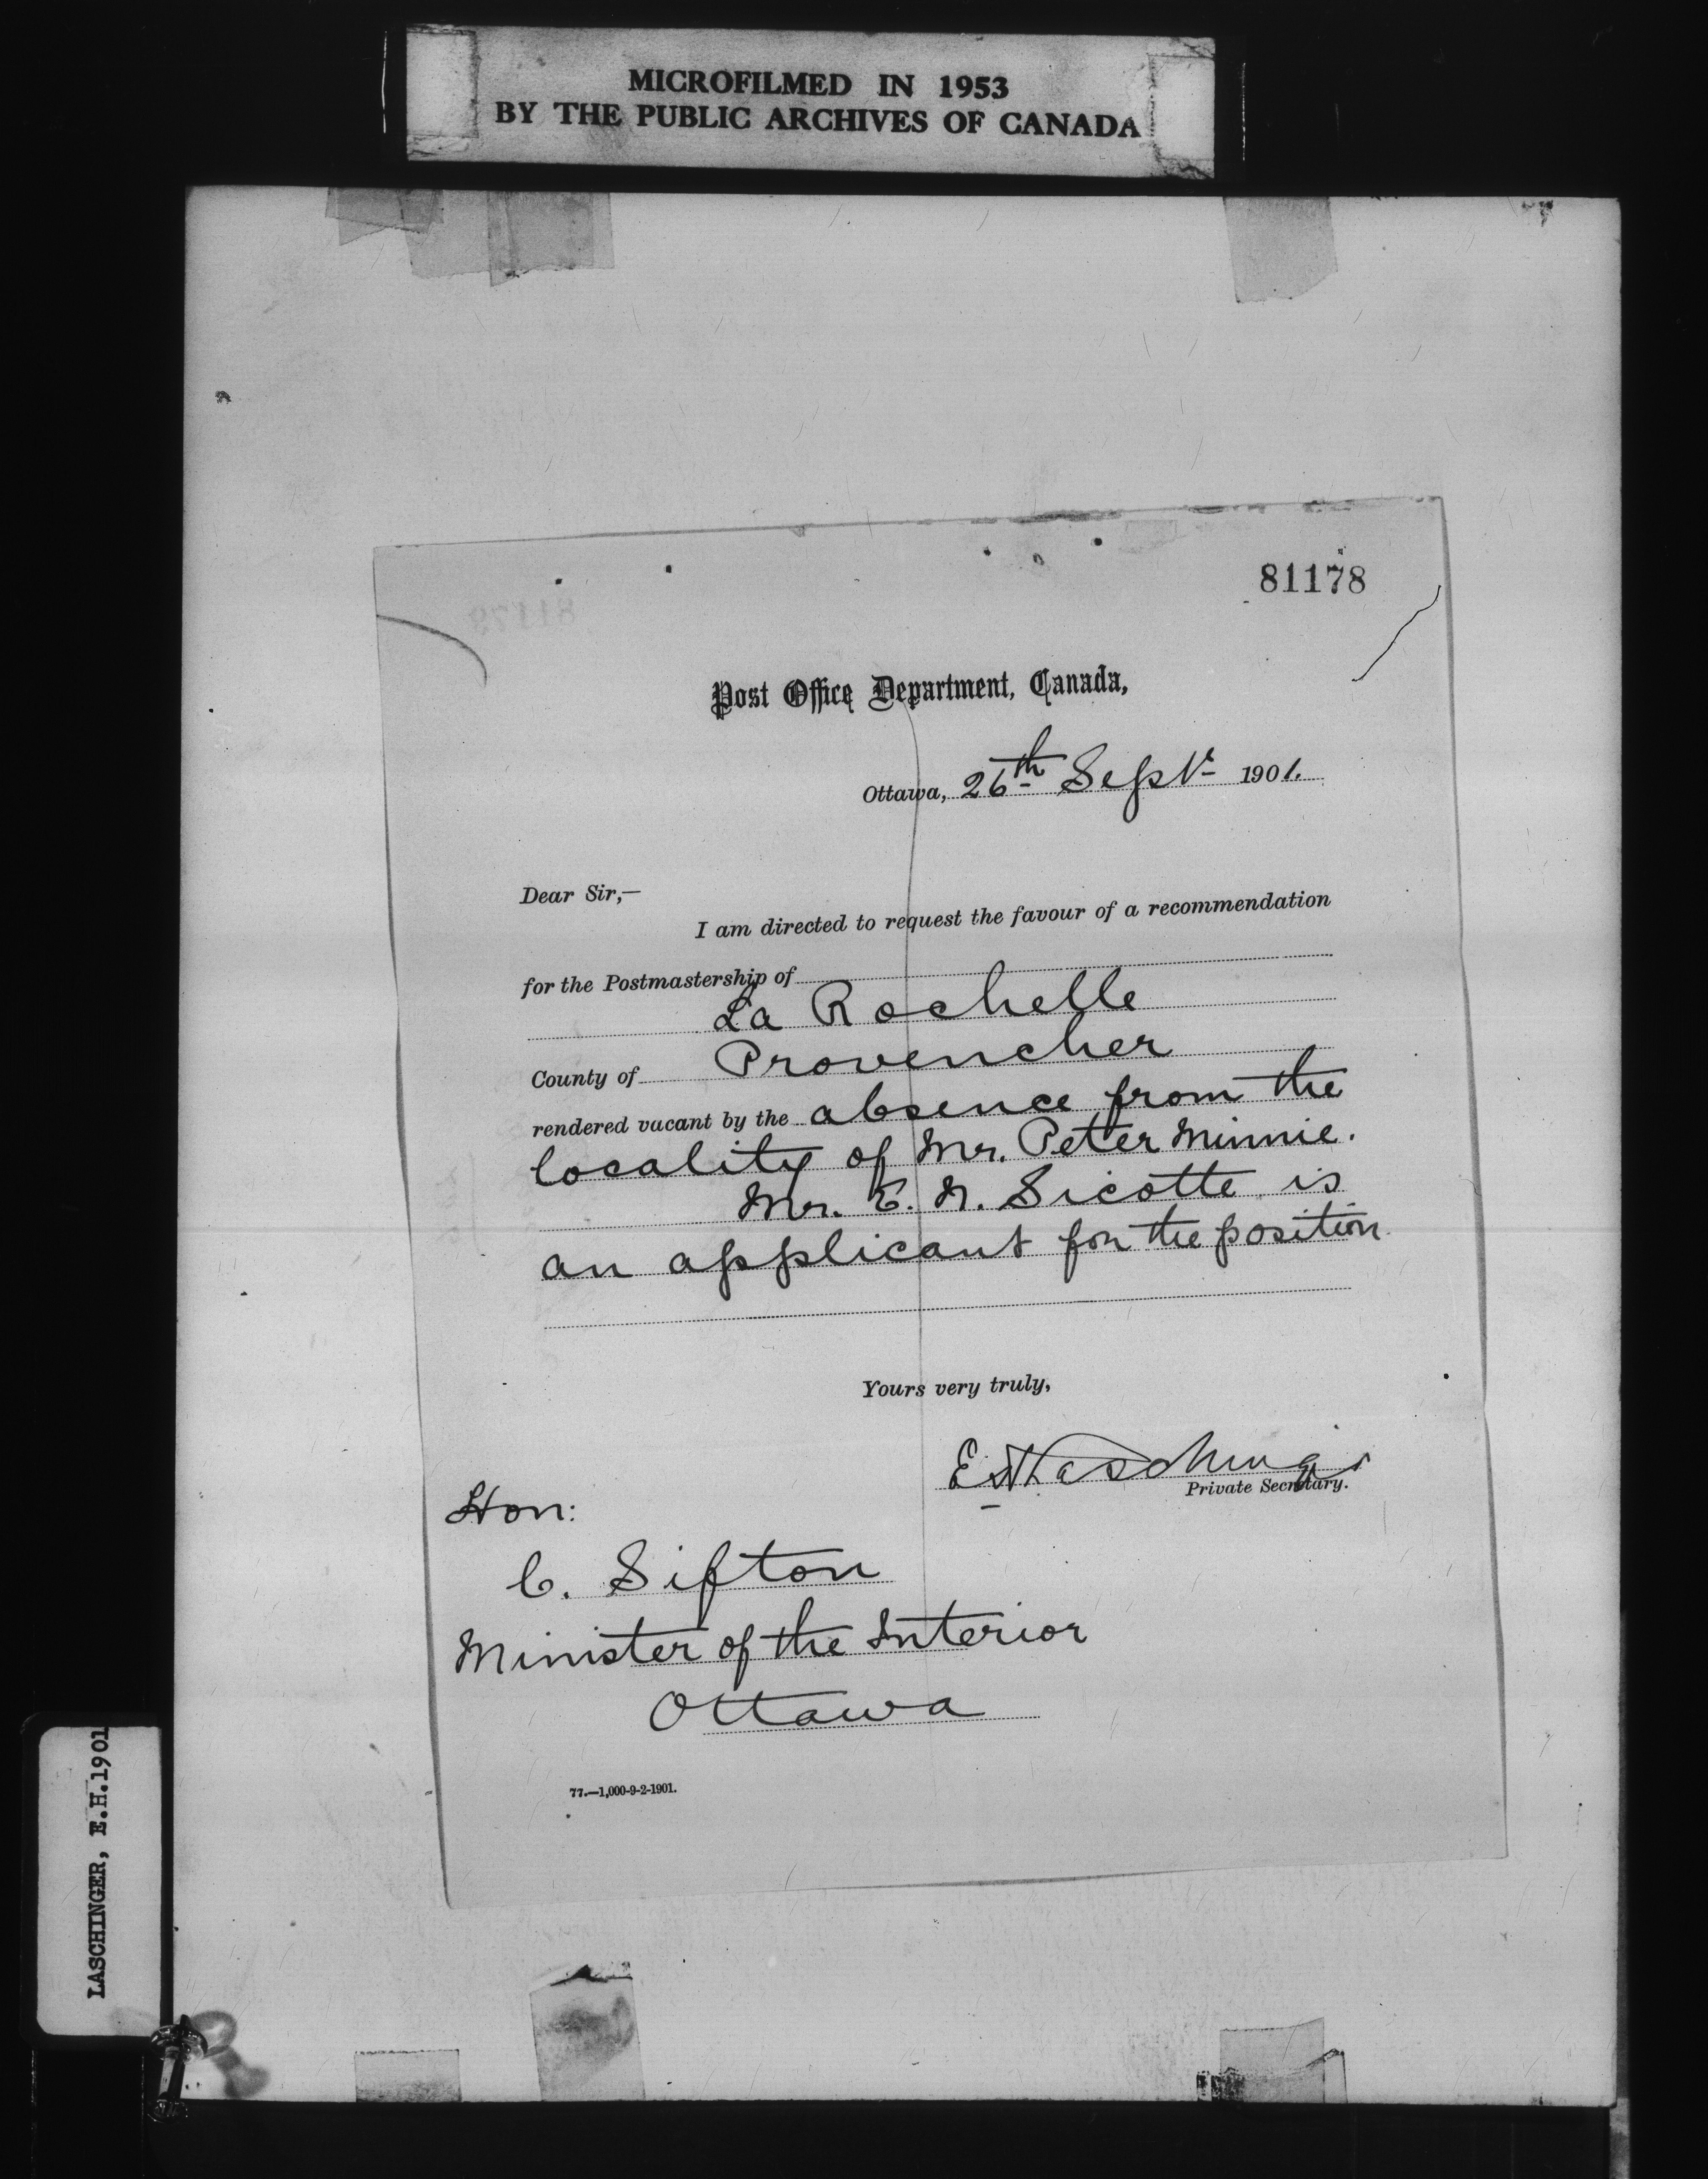 MICROFILMED IN 1953
BY THE PUBLIC ARCHIVES OF CANADA
81178
Post Office Department, Canada,
Ottawa, 26th Septr 1901.
Dear Sir,—
I am directed to request the favour of a recommendation
for the Postmastership of
La Rochelle
County of Provencher
rendered vacant by the absence from the
locality of Mr. Peter Minnie.
Mr. E. N. Sicotte is
an applicant for the position
Yours very truly,
E H Laschinger
Private Secretary.
Hon:
C. Sifton
Minister of the Interior
Ottawa
77.—1,000-9-2-1901.
LASCHINGER, E.H.1901